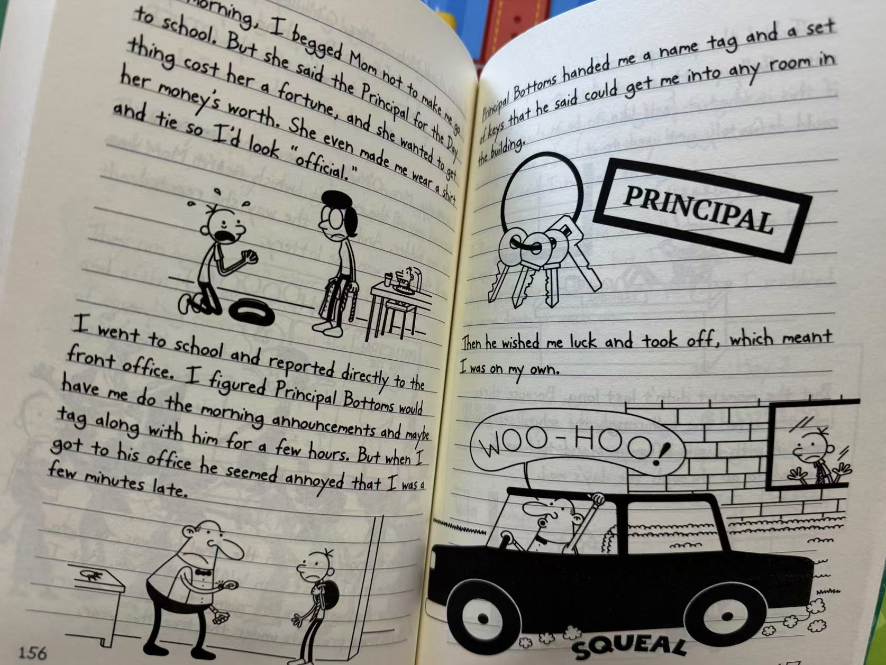 morning, I begged Mom not to make me go
to school. But she said the Principal for the Day
thing cost her a fortune, and she wanted to get
her money's worth. She even made me wear a shirt
and tie so I'd look "official."
I went to school and reported directly to the
front office. I figured Principal Bottoms would
have me do the morning announcements and maybe
tag along with him for a few hours. But when I
got to his office he seemed annoyed that I was a
few minutes late.
156
Principal Bottoms handed me a name tag and a set
of keys that he said could get me into any room in
the building.
PRINCIPAL
Then he wished me luck and took off, which meant
I was on my own.
WOO-HOO!
SQUEAL